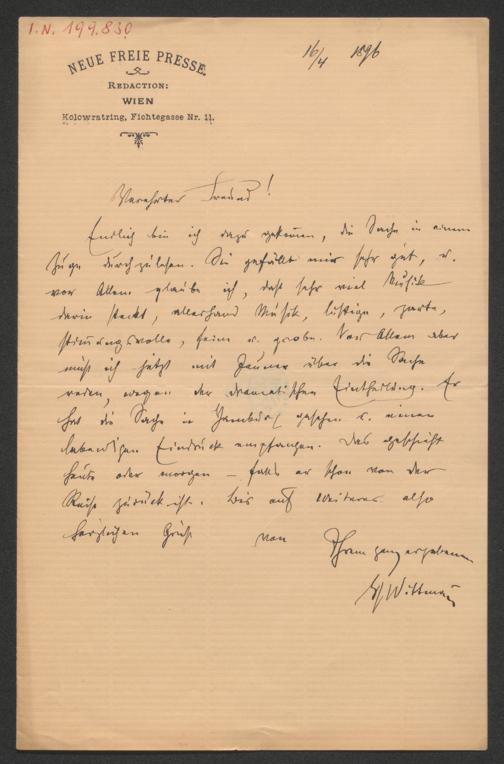 I.N. 199.830
NEUE FREIE PRESSE.
REDACTION:
WIEN
Kolowratring, Fichtegasse Nr. 11.
16/4 1896
Verehrter Freund!
Endlich bin ich dazu gekommen, die Sache in einem
Zuge durchzulesen. Sie gefällt mir sehr gut, u.
vor Allem glaube ich, daß sehr viel Musik
darin steckt, allerhand Musik, lustige, zarte,
stimmungsvolle, feine u. grobe. Vor Allem aber
muß ich jetzt mit Jauner über die Sache
reden, wegen der dramatischen Eintheilung. Er
hat die Sache in Hamburg gesehen u. einen
lebendigen Eindruck empfangen. Das geschieht
heute oder morgen – falls er schon von der
Reise zurück ist. Bis auf Weiteres also
herzlichen Gruß von Ihrem ganz ergebenen
Wittmann